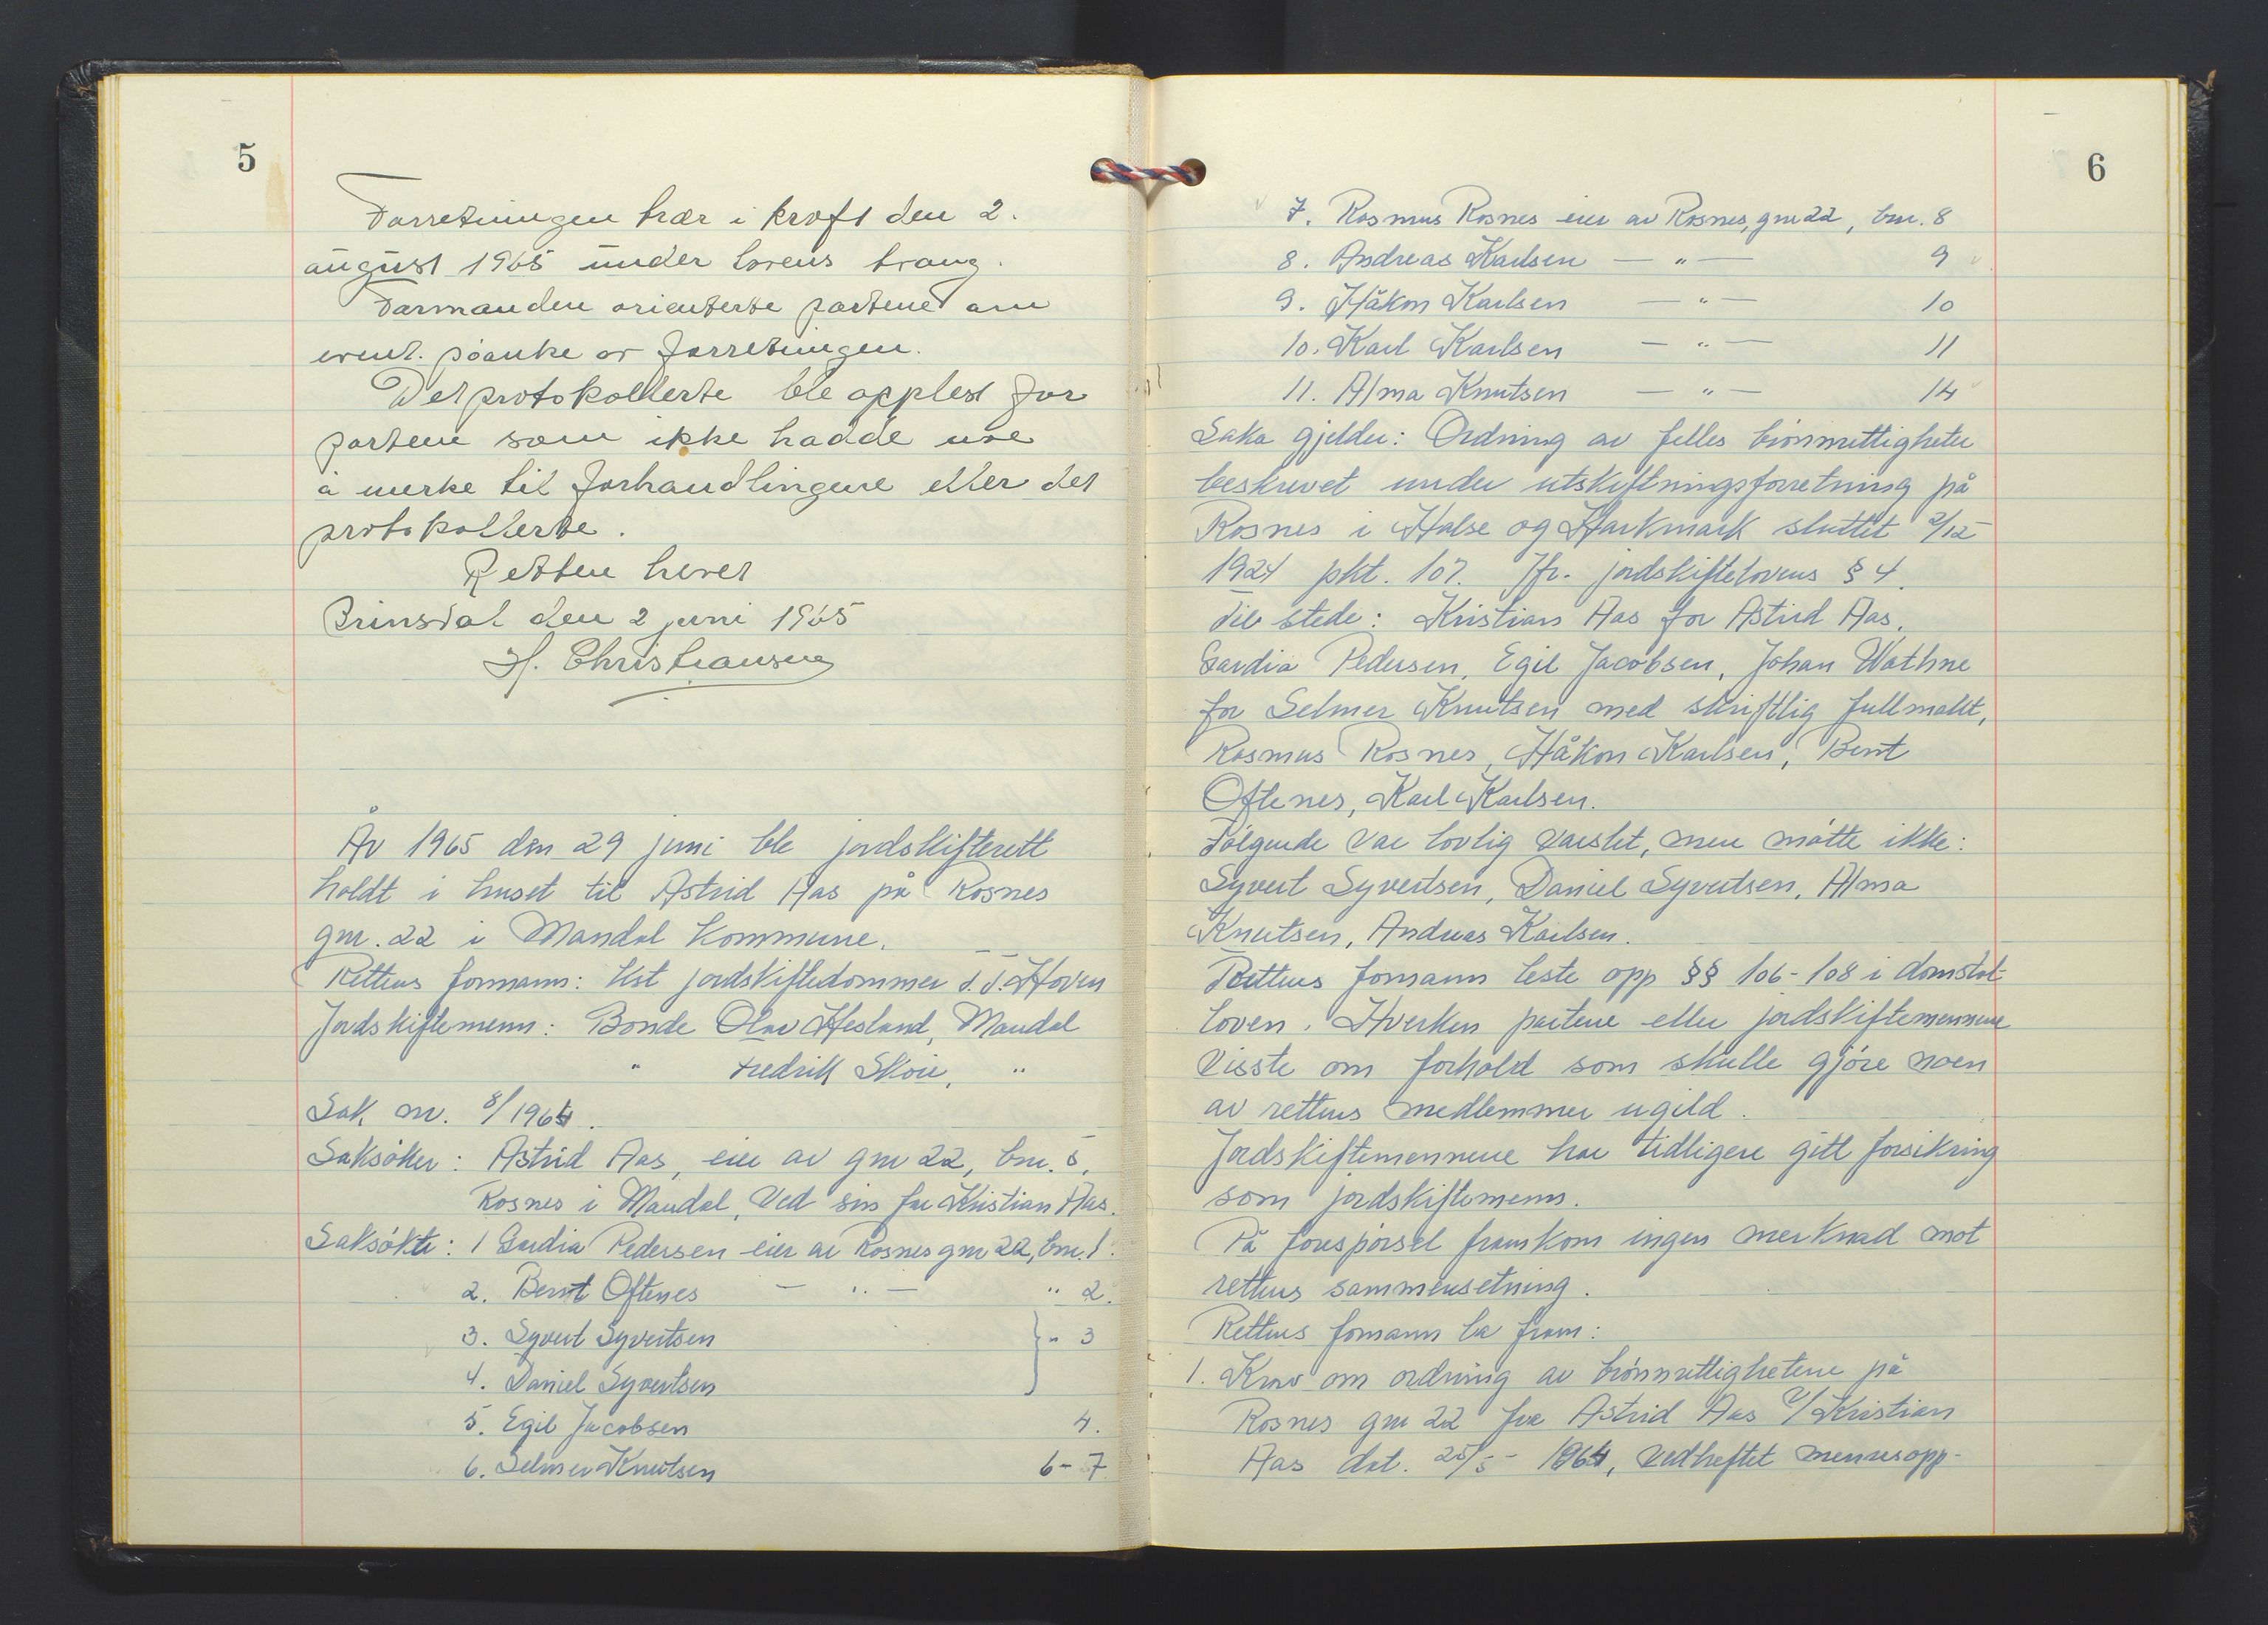 5
Forretningen trær i kraft den 2.
august 1965 under lovens tvang.
Formanden orienterte partene om
event. påanke av forretningen.
Det protokollerte ble opplest for
partene som ikke hadde noe
å merke til forhandlingene eller det
protokollerte.
Retten hevet
Brinsdal den 2 juni 1965
H. Christiansen
År 1965 den 29 juni ble jordskifterett
holdt i huset til Astrid Aas på Rosnes
gnr. 22 i Mandal kommune.
Rettens formann: Kst jordskiftedommer T. T. Hoven
Jordskiftemenn: Bonde Olav Hesland, Mandal
" Fredrik Skoie, "
Sak nr. 8/1964.
Saksøker: Astrid Aas, eier av gnr 22, bnr. 5,
Rosnes i Mandal, ved sin far Kristian Aas.
Saksøkte: 1 Gardia Pedersen eier av Rosnes gnr 22, bnr. 1.
2. Bernt Oftenes — " — " 2.
3. Syvert Syvertsen } " 3
4. Daniel Syvertsen
5. Egil Jacobsen 4.
6. Selmer Knutsen 6-7
6
7. Rasmus Rosnes eier av Rosnes, gnr 22, bnr. 8
8. Andreas Karlsen — " — 9
9. Håkon Karlsen — " — 10
10. Karl Karlsen — " — 11
11. Alma Knutsen — " — 14
Saka gjelder: Ordning av felles brønnrettigheter
beskrevet under utskiftningsforretning på
Rosnes i Halse og Harkmark sluttet 2/12
1924 pkt. 107. Jfr. jordskiftelovens § 4.
Til stede: Kristian Aas for Astrid Aas,
Gardia Pedersen, Egil Jacobsen, Johan Wathne
for Selmer Knutsen med skriftlig fullmakt,
Rasmus Rosnes, Håkon Karlsen, Bernt
Oftenes, Karl Karlsen.
Følgende var lovlig varslet, men møtte ikke:
Syvert Syvertsen, Daniel Syvertsen, Alma
Knutsen, Andreas Karlsen.
Rettens formann leste opp §§ 106-108 i domstol-
loven. Hverken partene eller jordskiftemennene
visste om forhold som skulle gjøre noen
av rettens medlemmer ugild.
Jordskiftemennene har tidligere gitt forsikring
som jordskiftemenn.
På forespørsel framkom ingen merknad mot
rettens sammensetning.
Rettens formann la fram:
1. Krav om ordning av brønnrettighetene på
Rosnes gnr 22 fra Astrid Aas v/Kristian
Aas dat. 25/5 - 1964, vedheftet mennesopp-